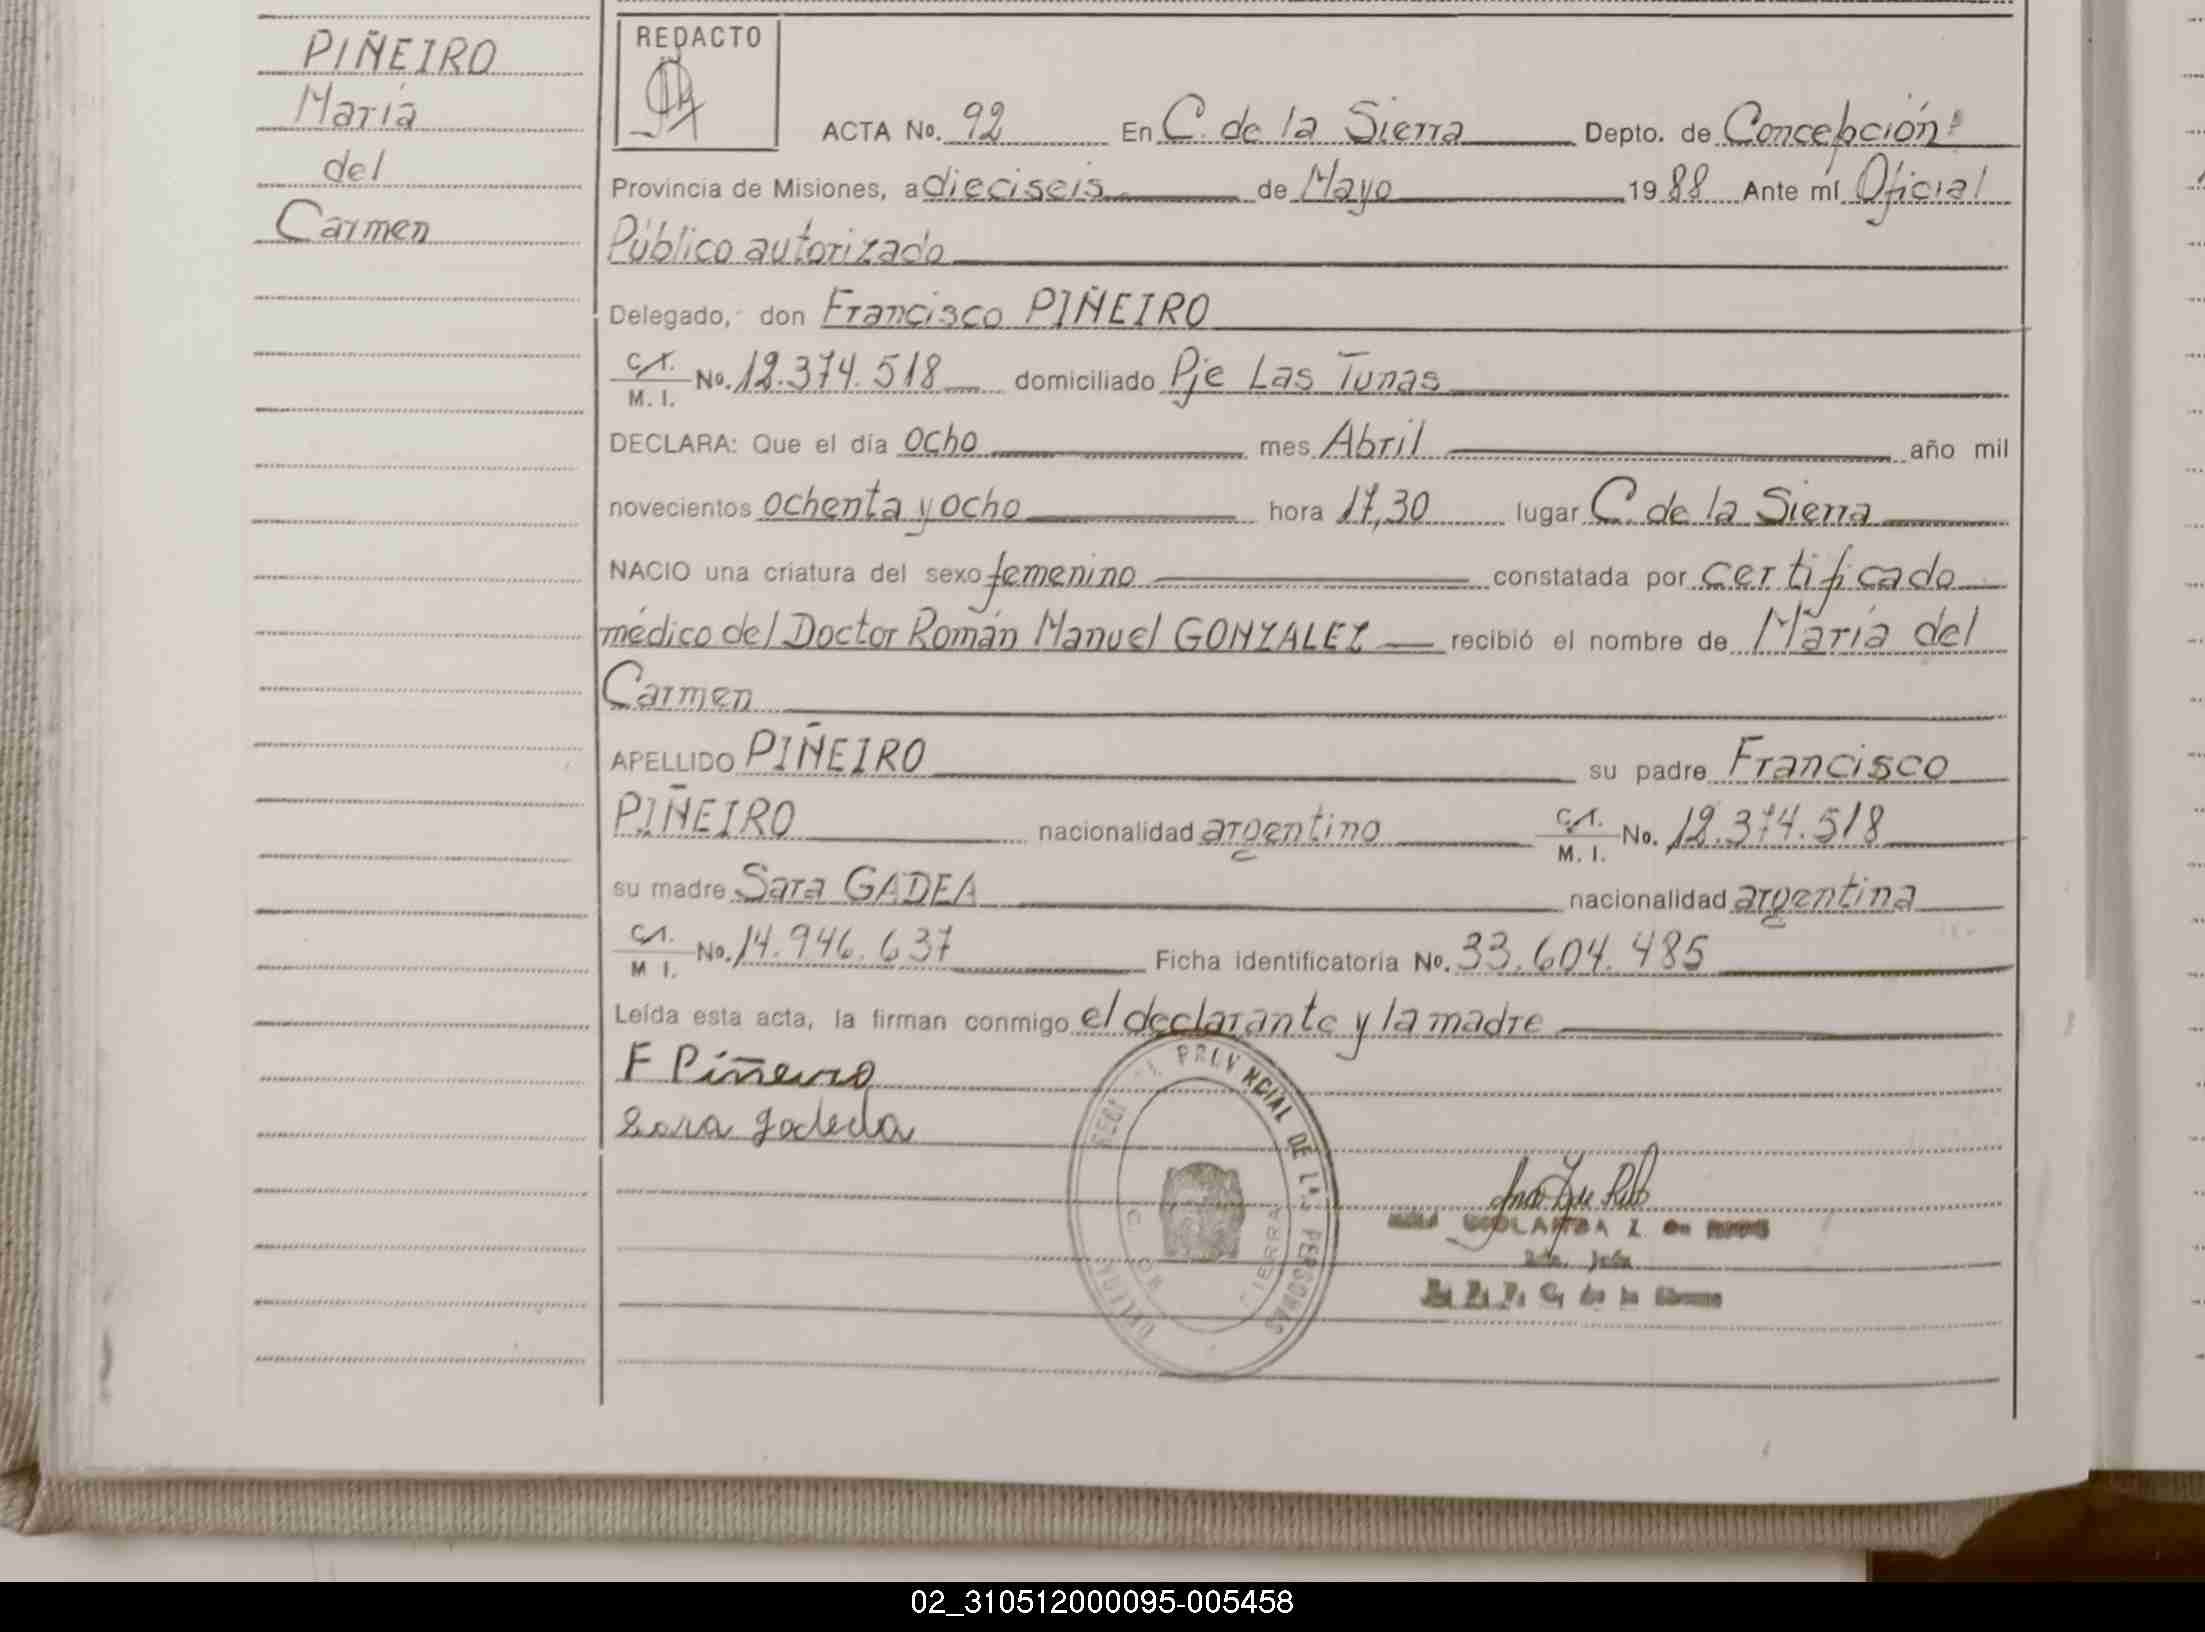 PIÑEIRO
María
del
Carmen
REDACTO
ACTA No. 92 En C. de la Sierra Depto. de Concepción
Provincia de Misiones, a dieciseis de Mayo 1988 Ante mí Oficial
Público autorizado
Delegado, don Francisco PIÑEIRO
C.I. M. I. No. 12.374.518 domiciliado Pje Las Tunas
DECLARA: Que el día ocho mes Abril año mil
novecientos ochenta y ocho hora 17,30 lugar C. de la Sierra
NACIO una criatura del sexo femenino constatada por certificado
médico del Doctor Román Manuel GONZALEZ recibió el nombre de María del
Carmen
APELLIDO PIÑEIRO su padre Francisco
PIÑEIRO nacionalidad argentino C.I. M. I. No. 12.374.518
su madre Sara GADEA nacionalidad argentina
C.I. M I. No. 14.946.637 Ficha identificatoria No. 33.604.485
Leída esta acta, la firman conmigo el declarante y la madre
F Piñeiro
Sara
PROVINCIAL DE LAS PERSONAS
SIERRA
C. de la Sierra
02_310512000095-005458